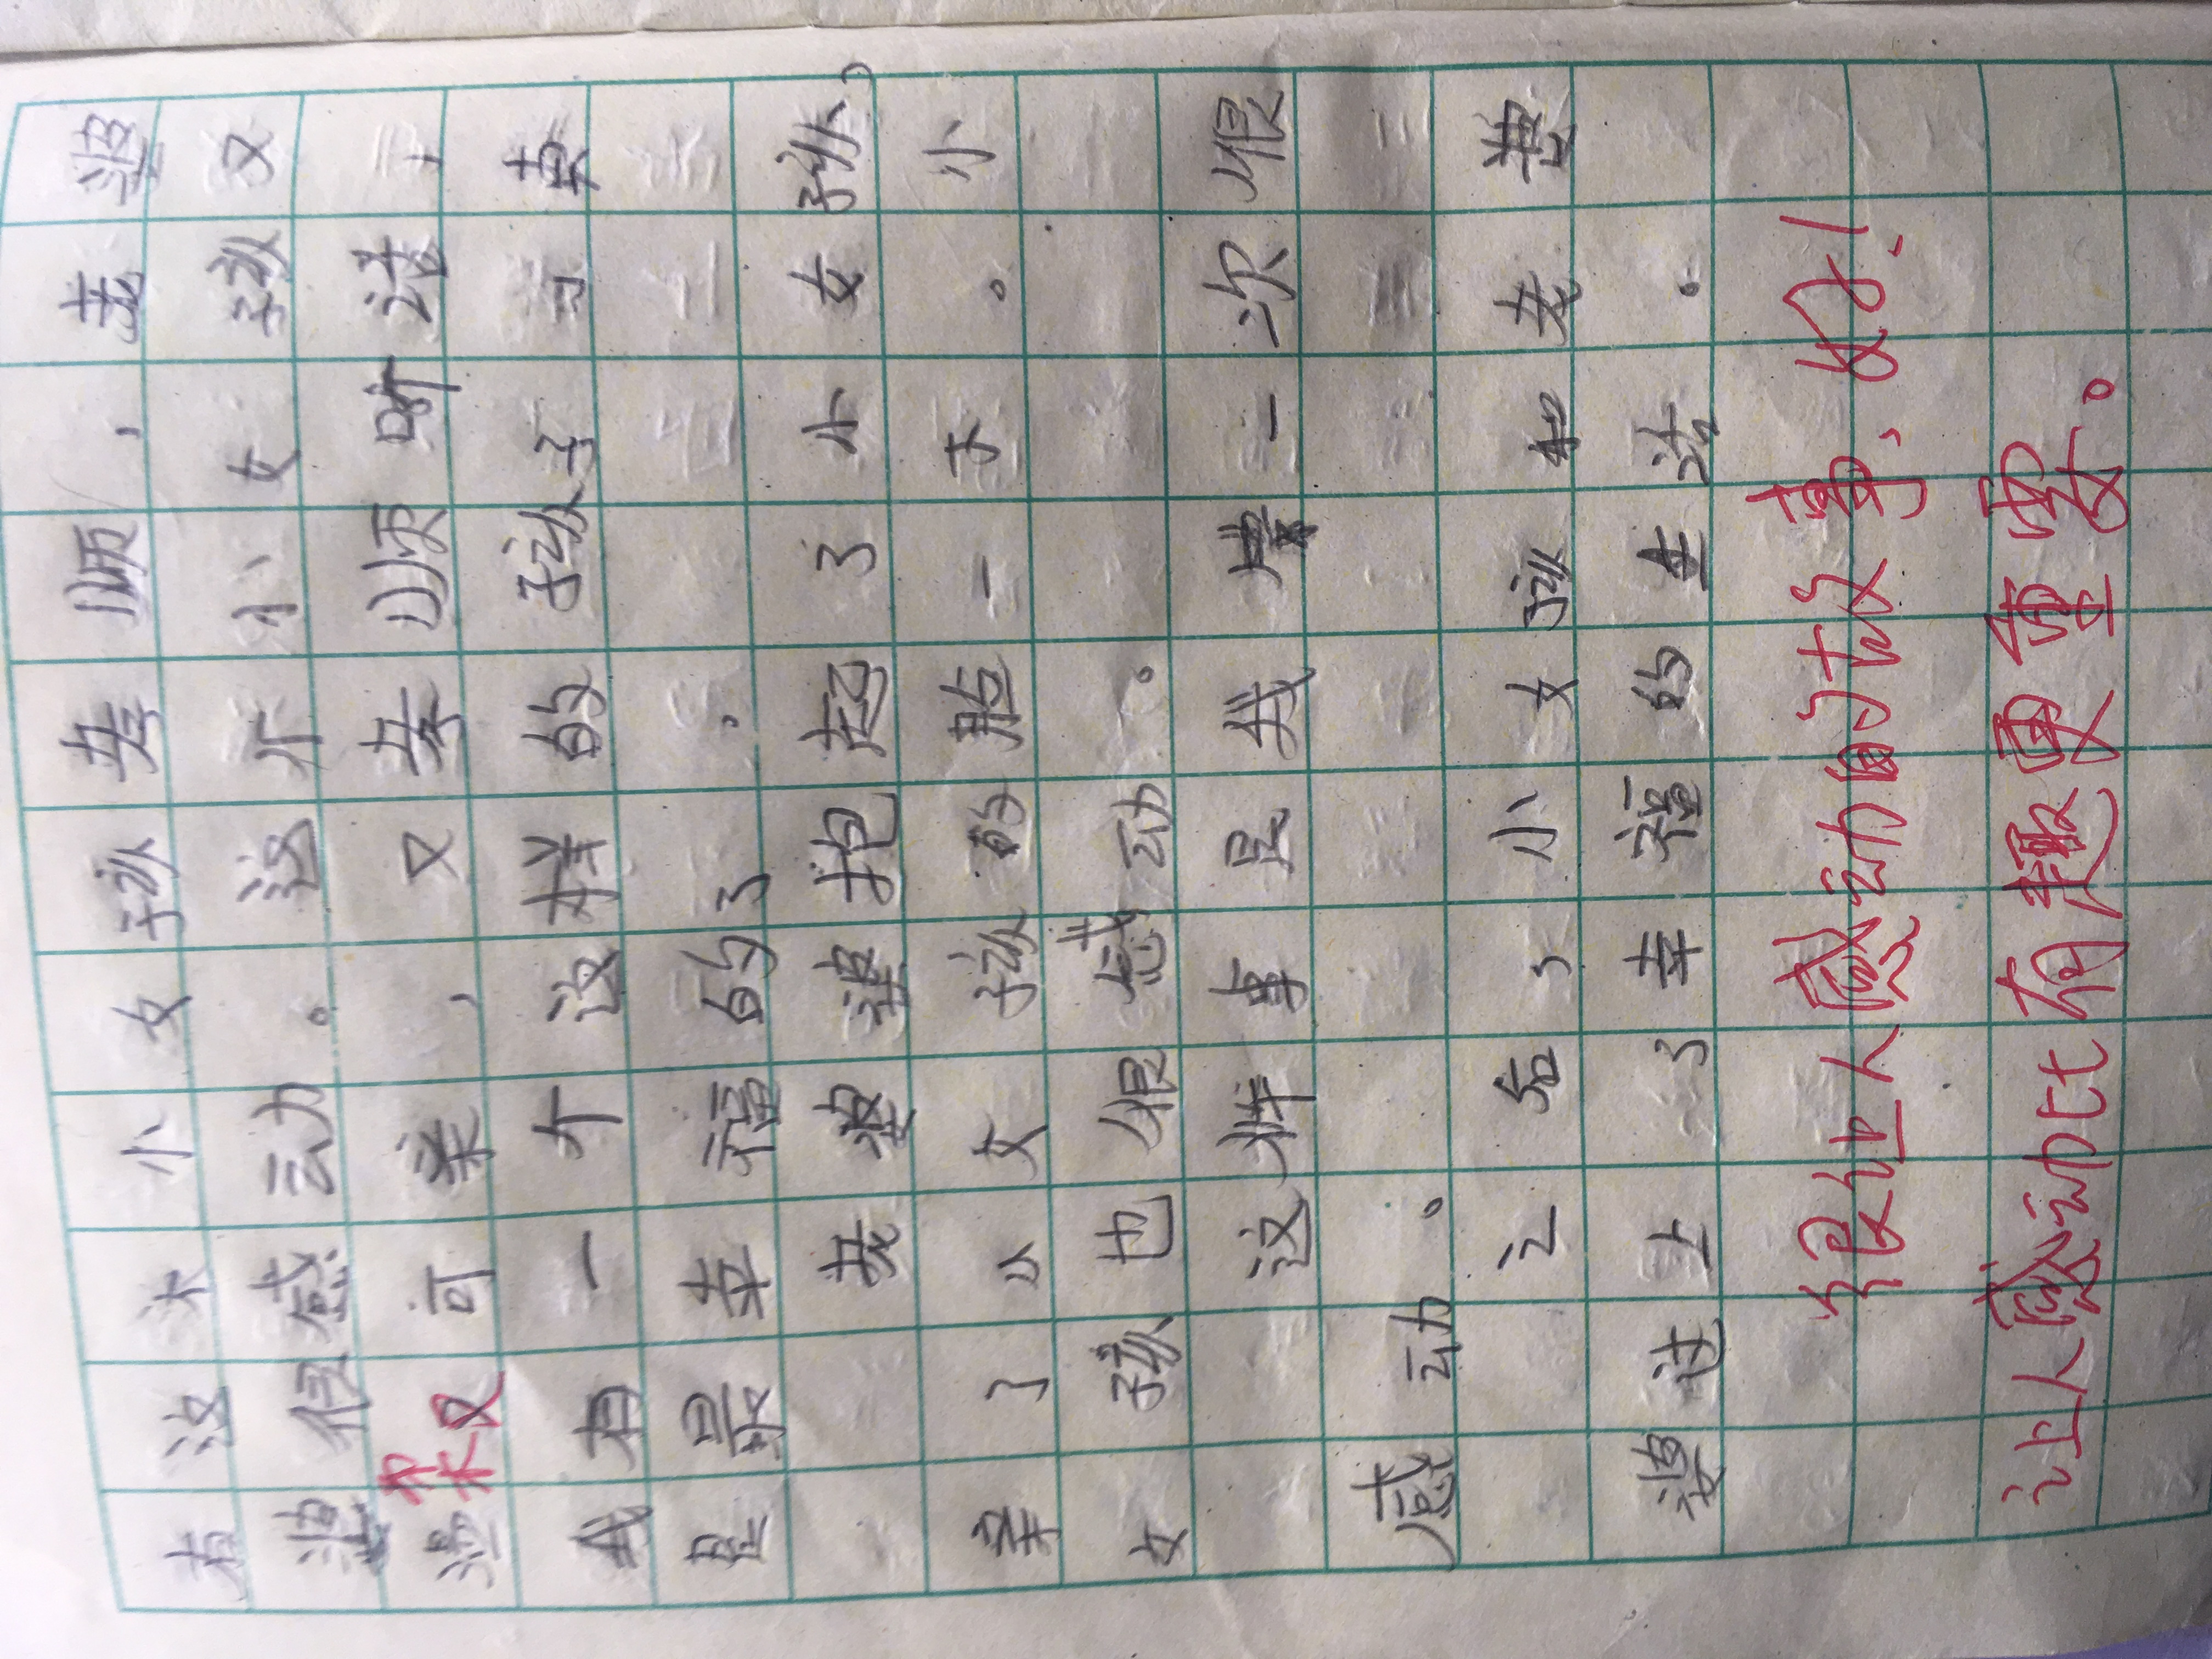 有这木小女孩孝顺，老婆
婆很感动。这个小女孩又
温柔又可亲，又孝顺听话，
我有一个这样的孩子了真
是最幸福的了。
老婆婆抱起了小女孩，
亲了小女孩的脸一下。小
女孩也很感动。
这件事是我第一次很
感动。
之后，小女孩和老婆
婆过上了幸福的生活。
很让人感动的故事，好！
让人感动比有趣更重要。